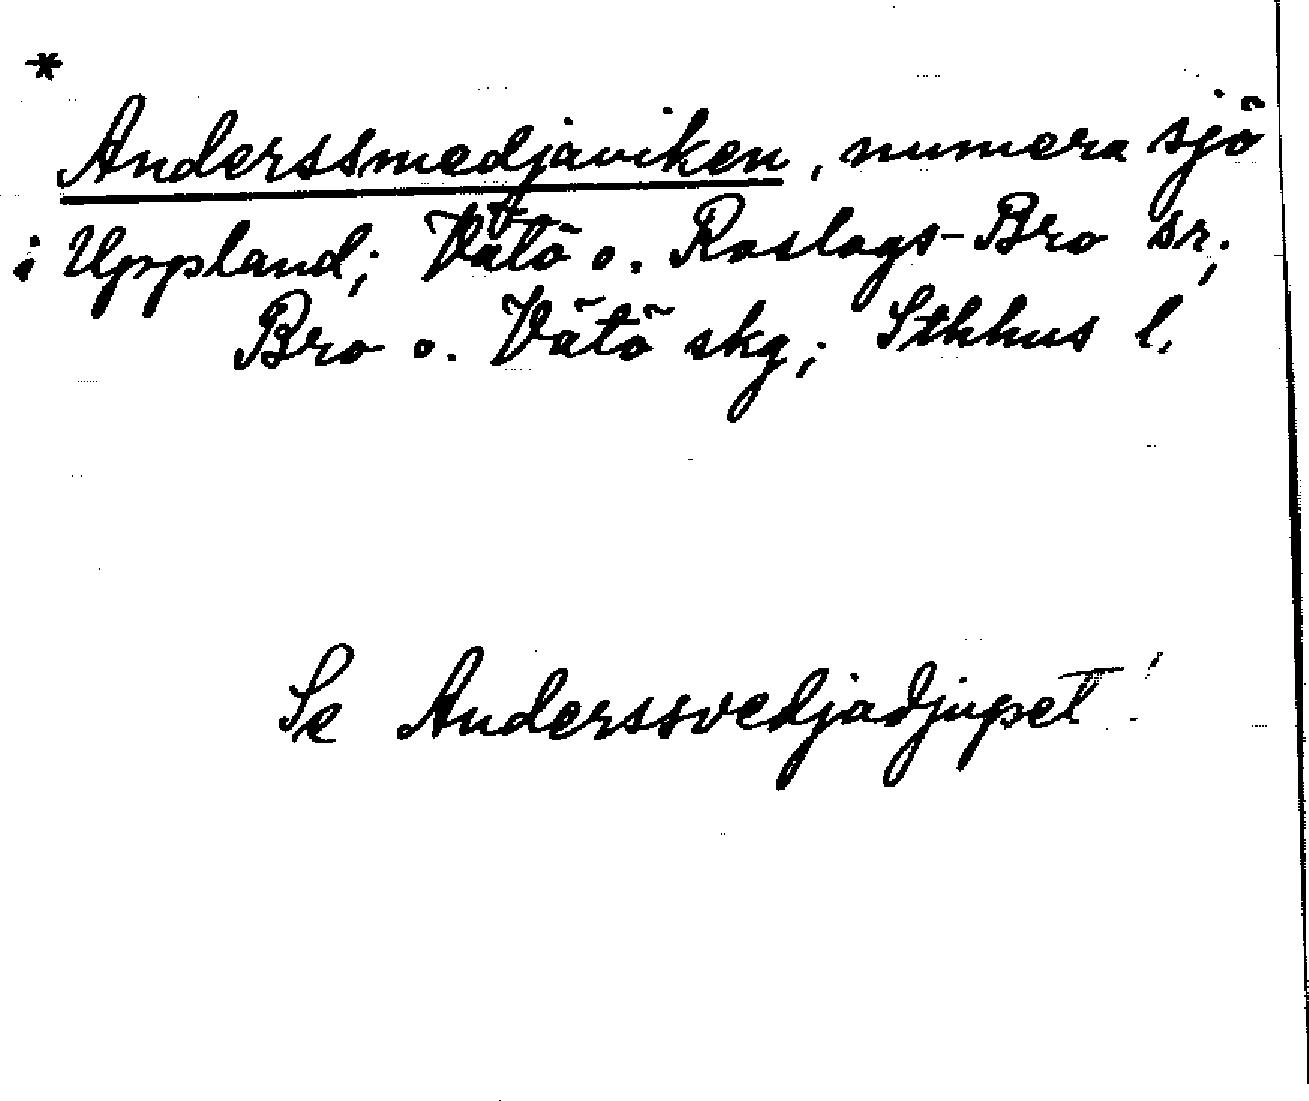 *
Anderssmedjaviken, numera sjö
i Uppland; Vätö o. Roslags-Bro sr;
Bro o. Vätö skg; Sthhus l.
Se Anderssvedjadjupet!